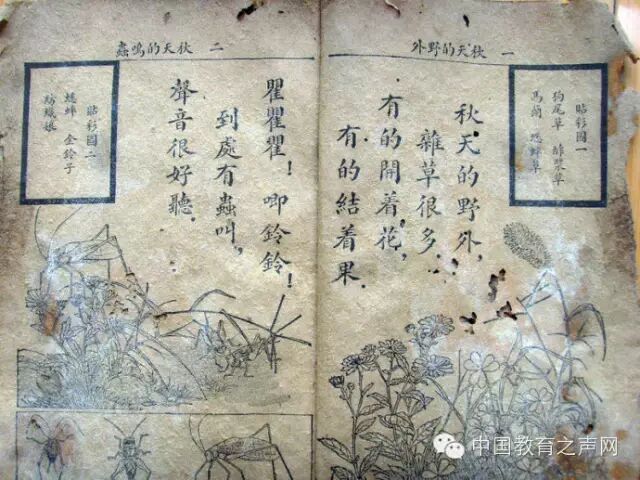 一 秋天的野外
貼彩圖一
狗尾草 酢漿草
馬蘭 蟋蟀草
秋天的野外,
雜草很多.
有的開着花,
有的結着果.
二 秋天的鳴蟲
瞿瞿瞿！唧鈴鈴！
到處有蟲叫,
聲音很好聽.
貼彩圖二
蟋蟀 金鈴子
紡織娘
中国教育之声网